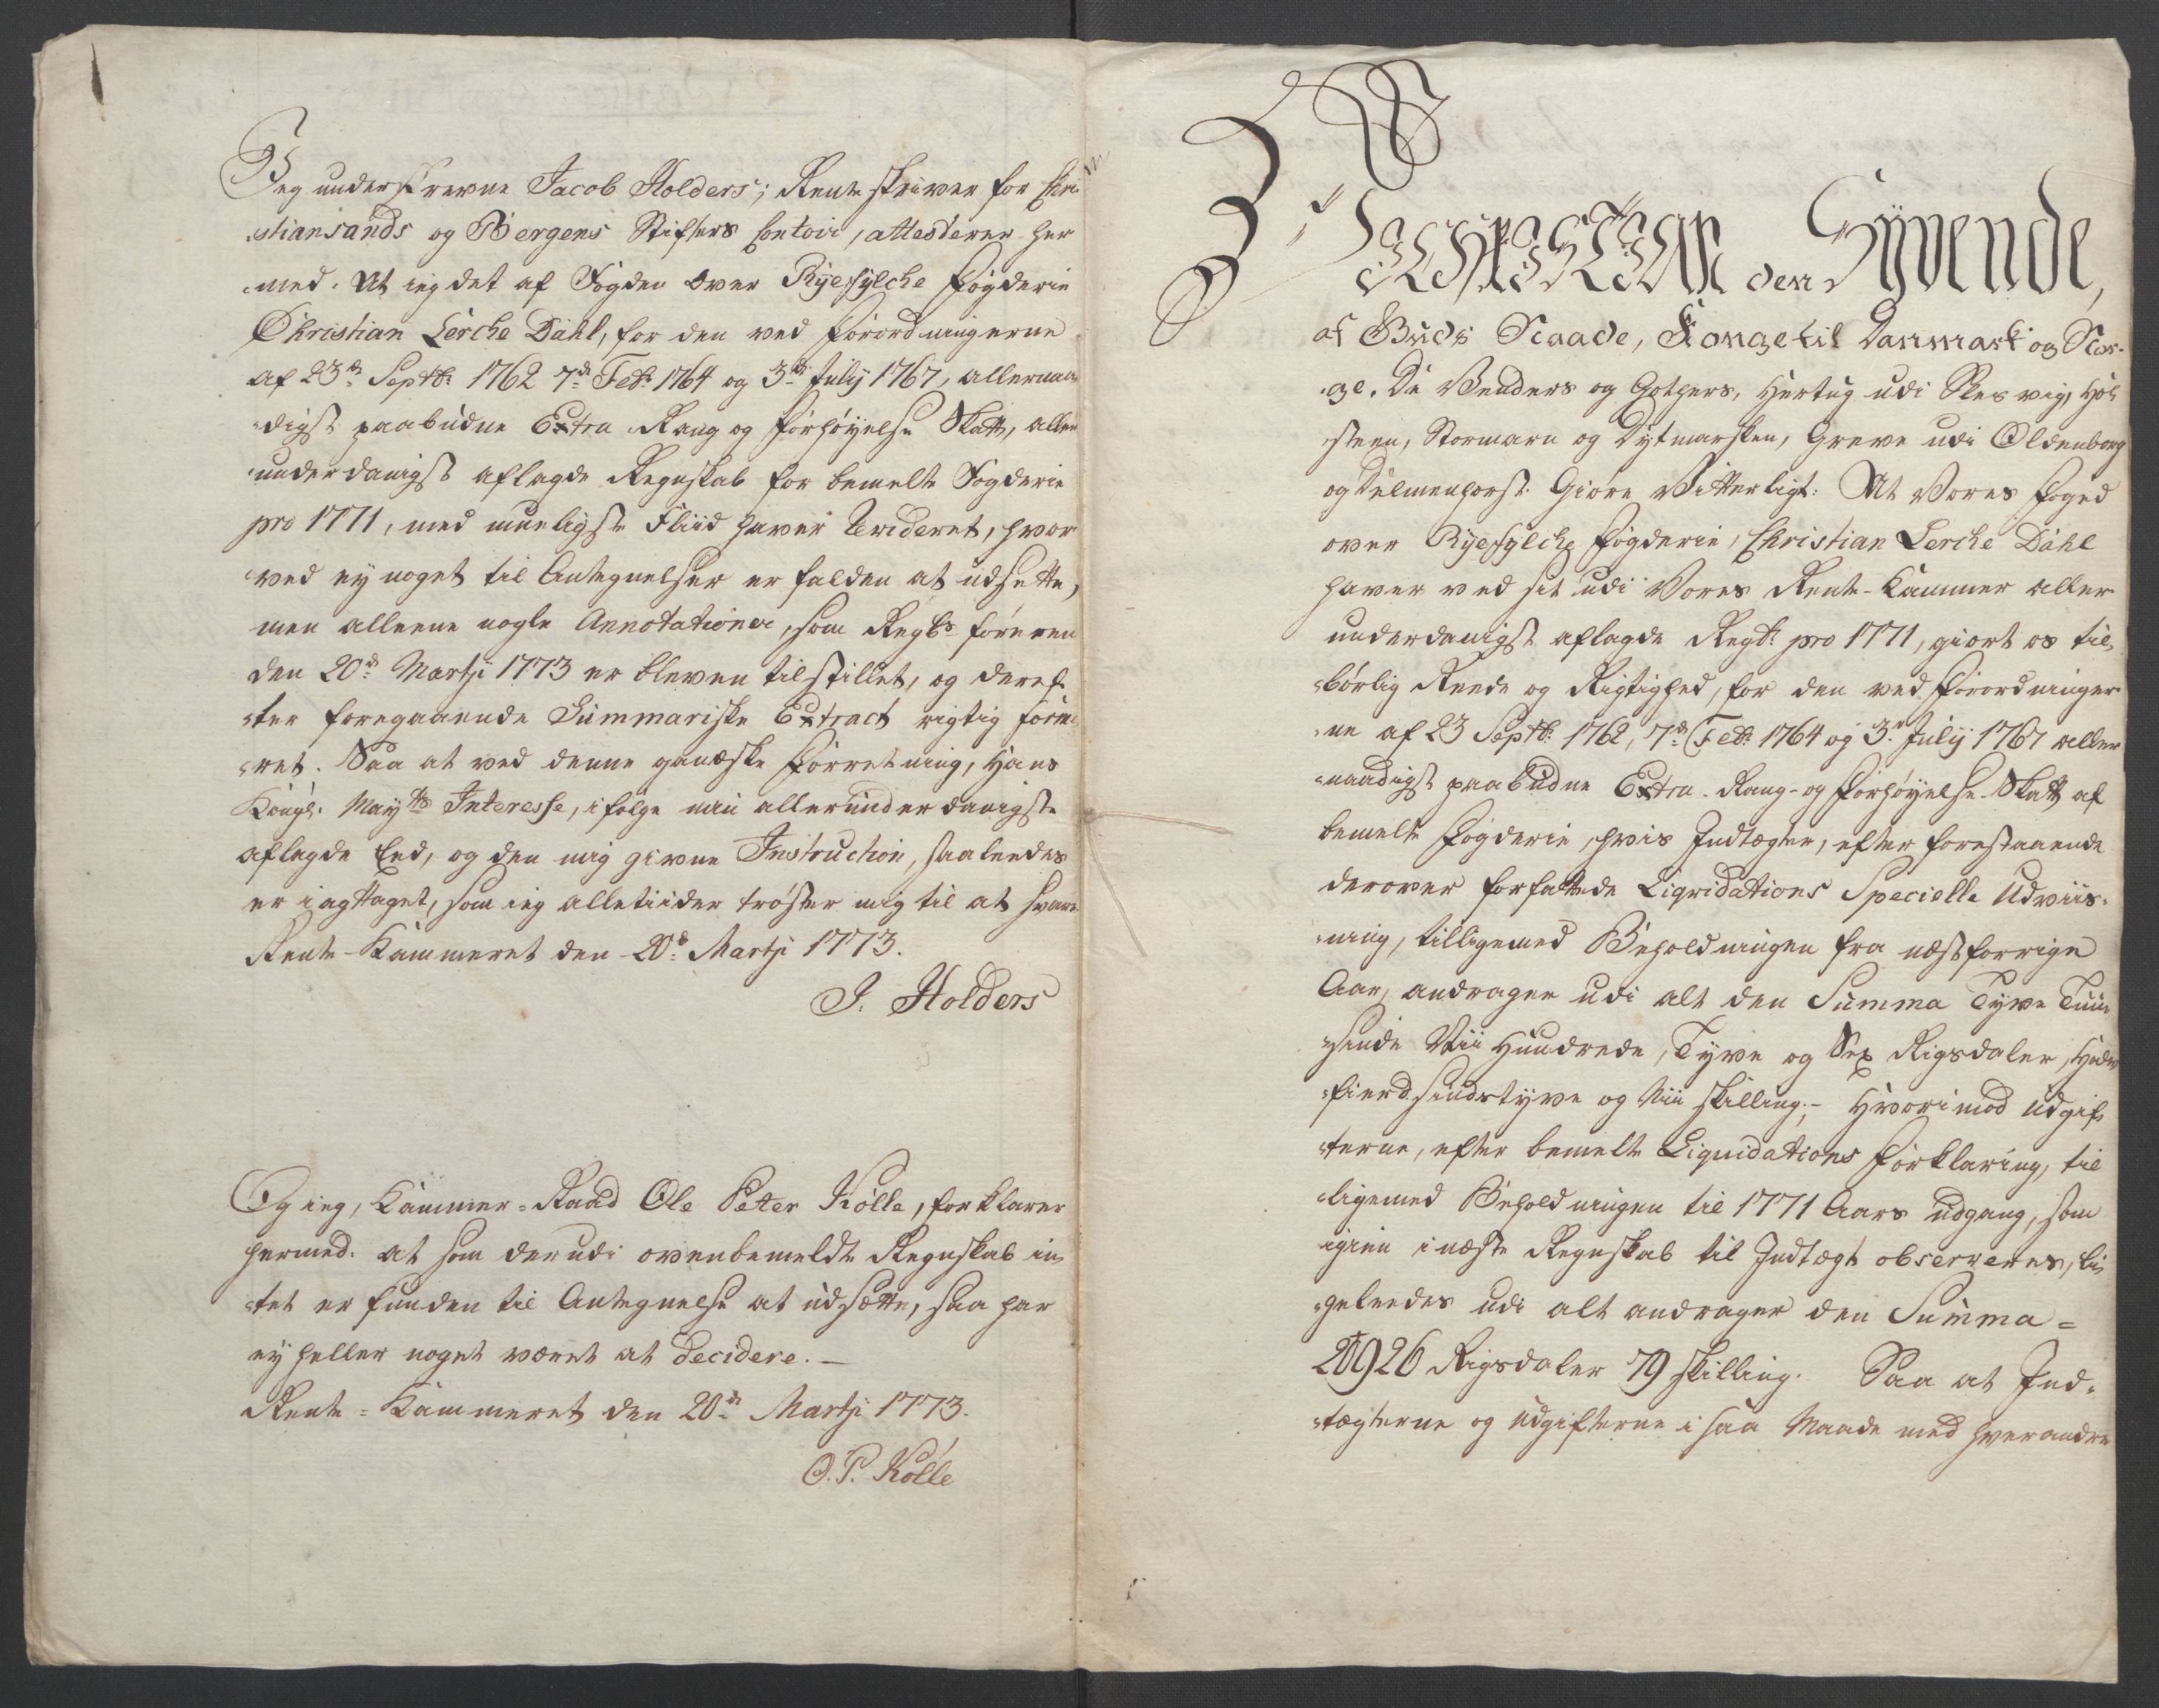 Jeg underskrevne Jacob Holders; Renteskriver for Chri-
stiansands og Bergens Stifters Contoir, attesterer her
med. At ieg det af Fogden over Ryefylche Fogderie
Christian Lerche Dahl, for den ved Forordningerne
af 23de Septbr 1762 7de Febr 1764 og 3die July 1767, allernaa-
digst paabudne Extra Rang og Forhøyelse Skatt, aller
underdanigst aflagde Regnskab for bemelte Fogderie
pro 1771, med mueligste Fliid haver revideret, hvor
ved ey noget til Antegnelser er falden at udsette,
men alleene nogle Annotationer, som Regbs føreren
den 20de Martji 1773 er bleven tilstillet, og deref-
ter foregaaende Summariske Extract rigtig formeret
. Saa at ved denne gandske Forretning, Hans
Kongl. Mayts Interesse, ifølge min allerunderdanigste
aflagde Eed, og den mig givne Instruction, saaledes
er iagttaget, som ieg alletiider trøster mig til at svare
Rente-Kammeret den 20de Martji 1773.
J. Holders
Og ieg, Kammer-Raad Ole Peter Kølle, forklarer
hermed. at som derudi ovenbemeldte Regnskab in-
tet er funden til Antegnelse at udsætte, saa har
ey heller noget været at decidere.
Rente-Kammeret den 20de Martji 1773.
O. P. Kølle
Christian den Syvende,
af Guds Naade, Konge til Danmark og Nor-
ge. De Wenders og Gothers, Hertug udi Slesvig, Hol-
steen, Stormarn og Dytmarsken, Greve udi Oldenborg
og Delmenhorst. Giøre Vitterligt: At Vores Foged
over Ryefylche Fogderie, Christian Lerche Dahl
haver ved sit udi Vores Rente-Kammer aller-
underdanigst aflagde Regsk: pro 1771, giort os til-
børlig Reede og Rigtighed, for den ved Forordninger-
ne af 23 Septbr 1762, 7de Febr 1764 og 3die July 1767 aller
naadigst paabudne Extra Rang- og Forhøyelse Skatt af
bemelte Fogderie, hvis Indtægter, efter forestaaende
derover forfattede Liqvidations Specielle Udviis-
ning, tilligemed Beholdningen fra næstforrige
Aar, andrager udi alt den Summa Tyve Tuu-
sinde Nii Hundrede, Tyve og Sex Rigsdaler, Halv-
fierdsindstyve og Nii skilling;- Hvorimod Udgif-
terne, efter bemelte Liquidations Forklaring, til-
ligemed Beholdningen til 1771 Aars udgang, som
igien i næste Regnskab til Indtægt observeres, li-
geleedes udi alt andrager den Summa =
20926 Rigsdaler 79 skilling. Saa at Ind-
tægterne og Udgifterne i saa Maade med hverandre